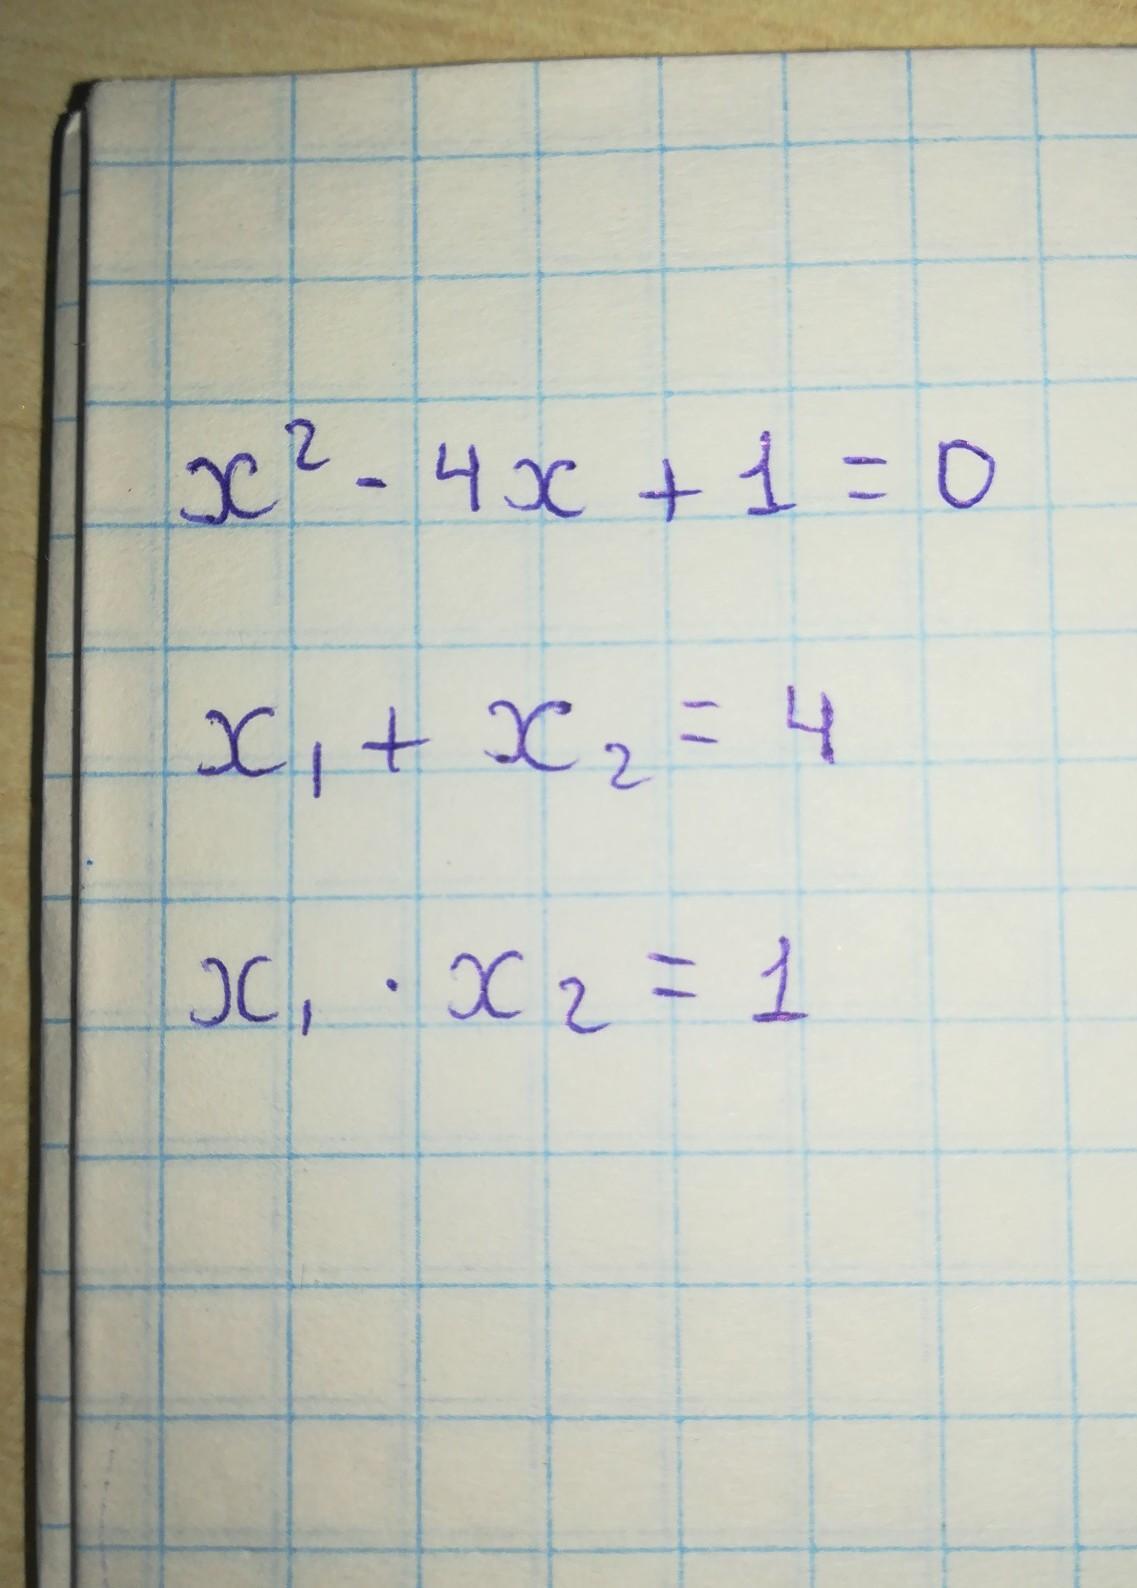 x² - 4x + 1 = 0
x₁ + x₂ = 4
x₁ · x₂ = 1